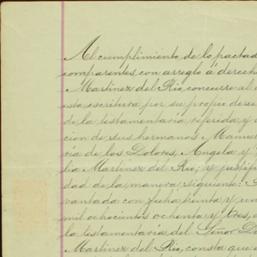 Al cumplimiento de lo pactado
comparentes, con arreglo á derecho
Martinez del Rio, concurre al
esta escritura por su propio dere
de la testamentaría referida y
cion de sus hermanos Manuel
ría de los Dolores, Angela y
lia Martinez del Rio; se justifi
dad de la manera siguiente:
vantada con fecha treinta y un
mil ochocientos ochenta y tres, 
la testamentaría del Señor D
Martinez del Rio, consta que